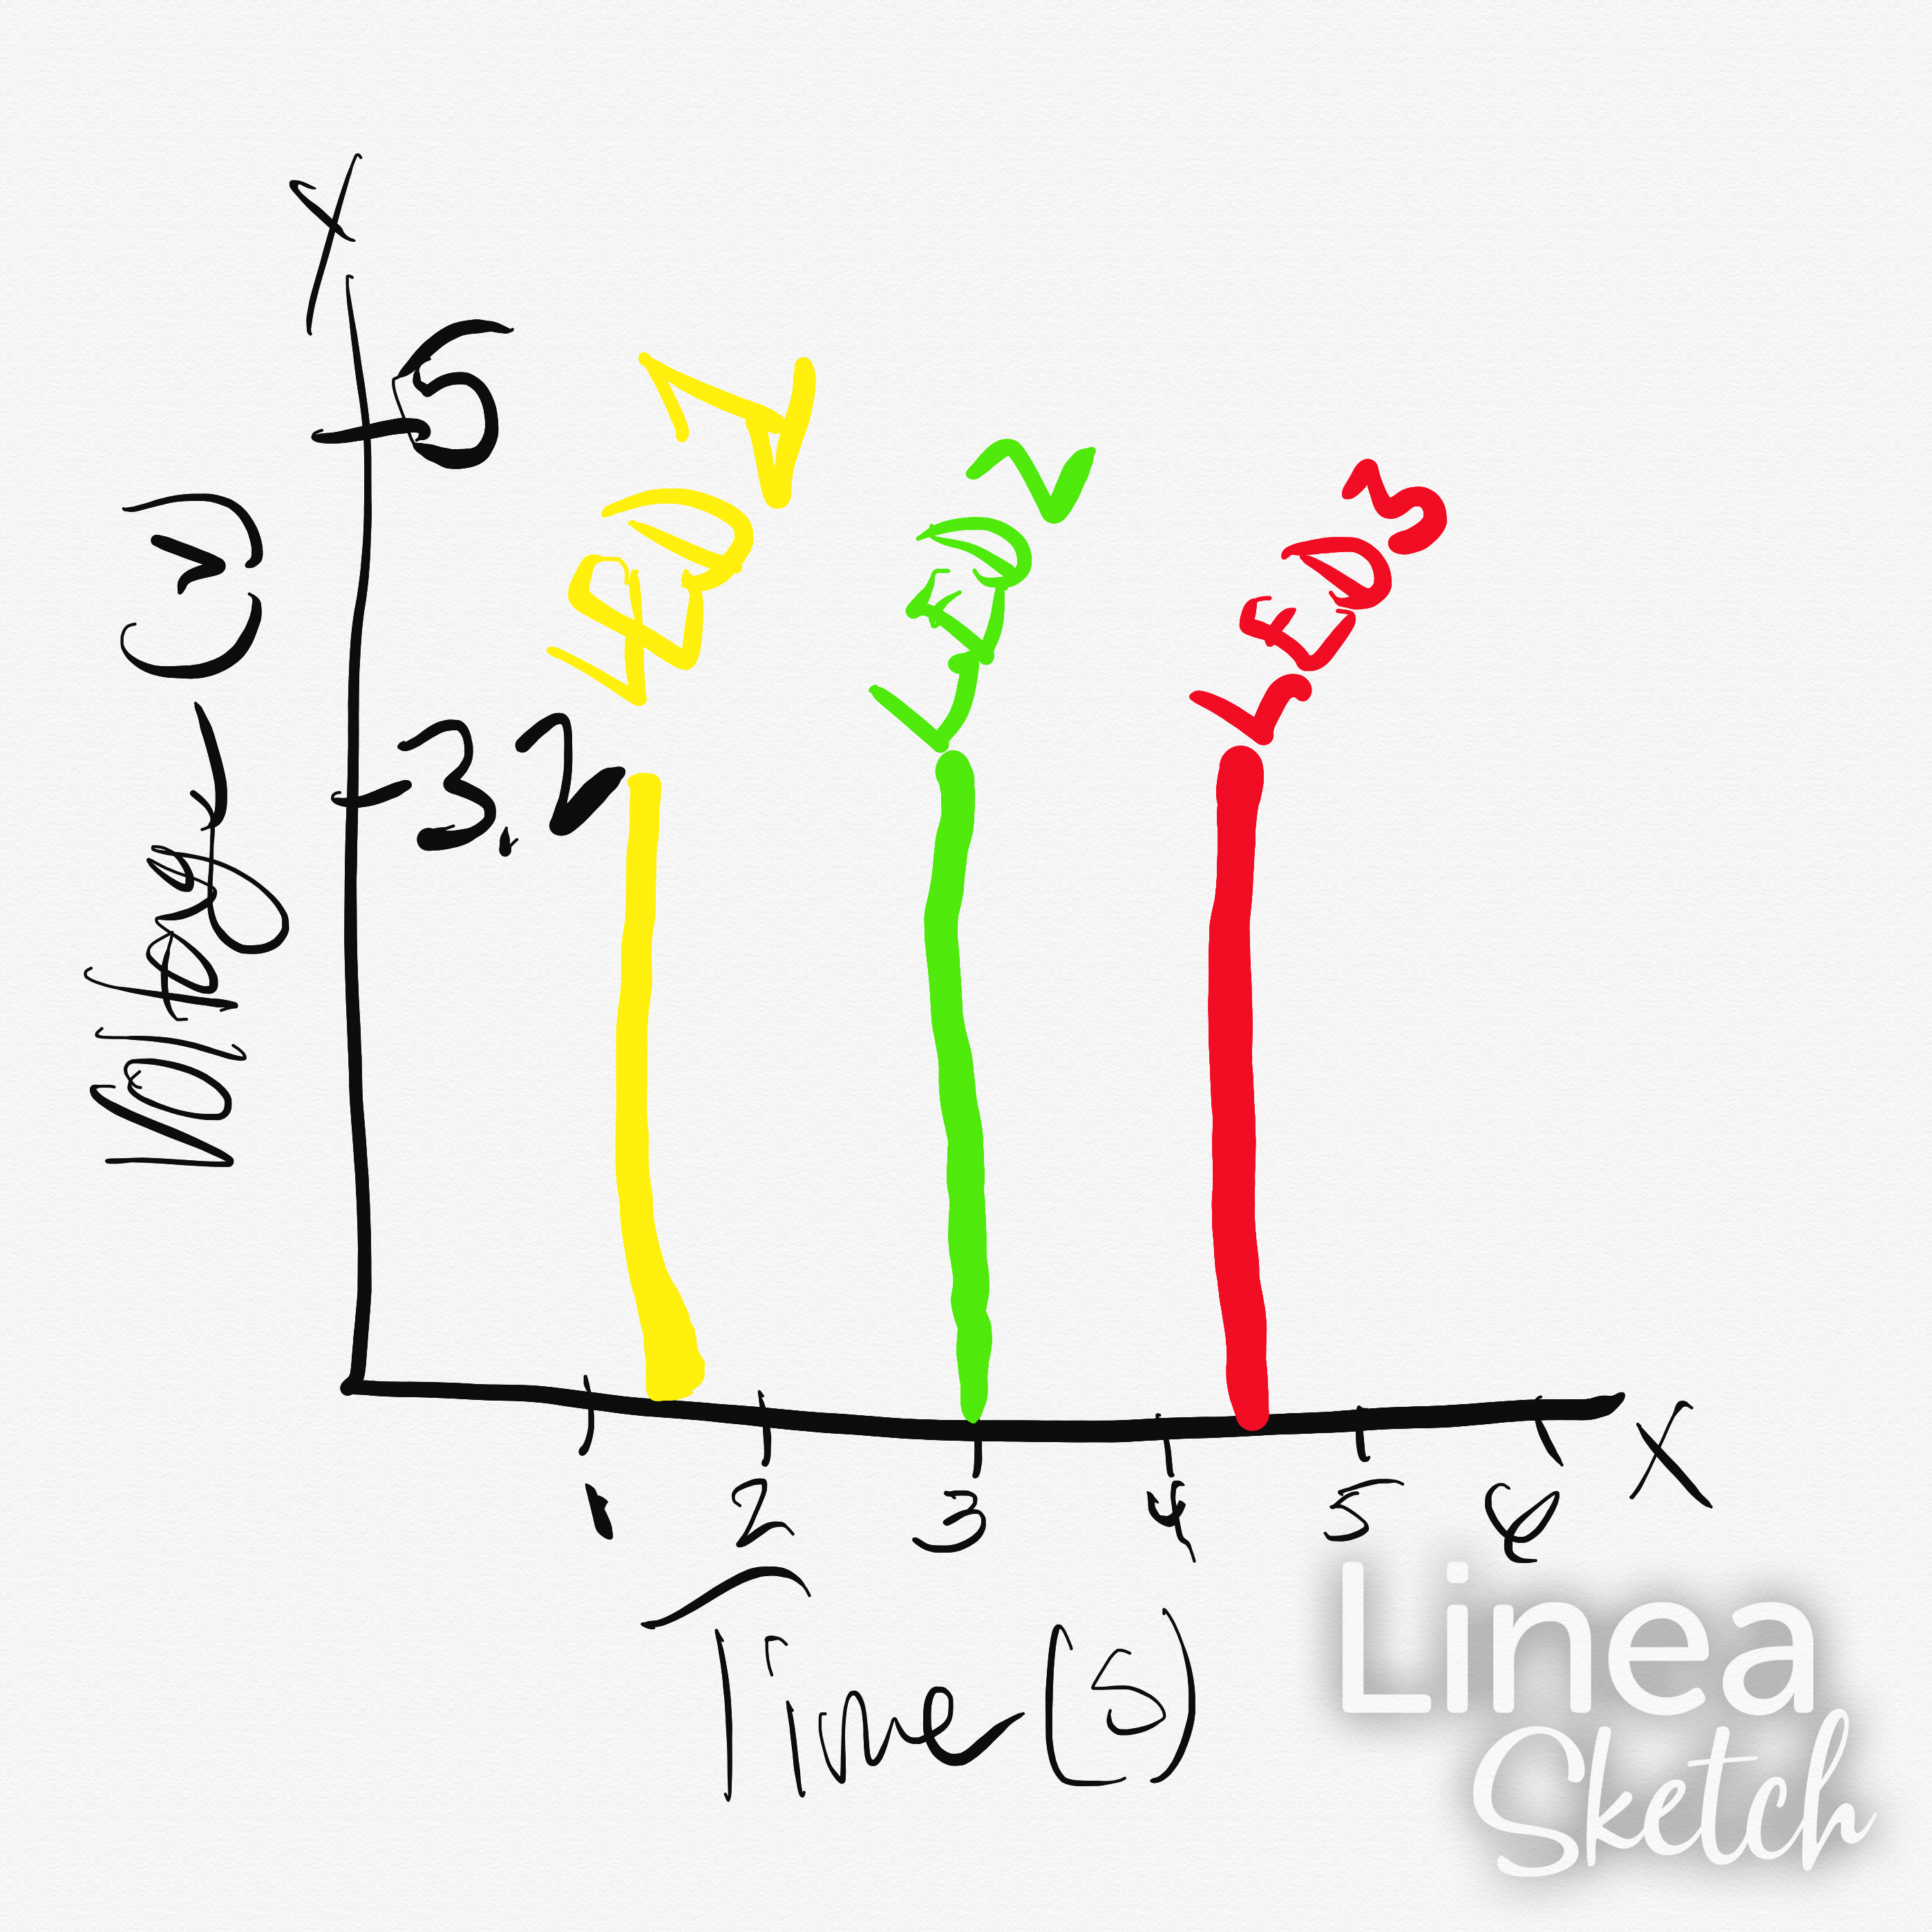 Y
5
Voltage (V)
LED 1
LED 2
LED 3
3.2
1 2 3 4 5 6
X
Time (s)
Linea
Sketch